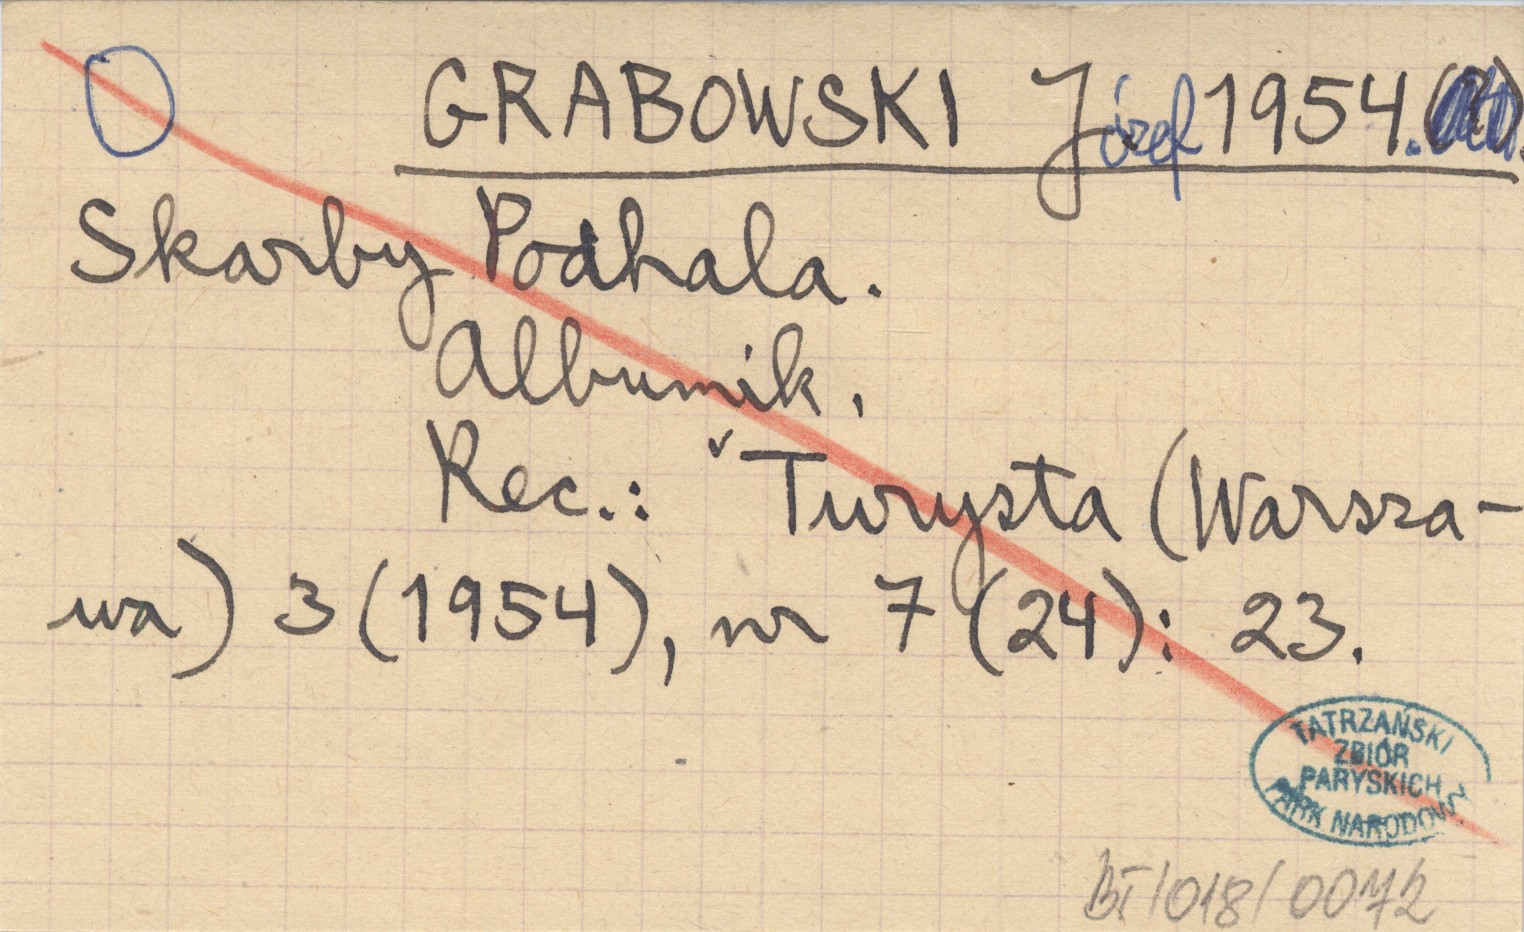 GRABOWSKI Józef 1954.
Skarby Podhala.
Albumik.
Rec.: Turysta (Warsza-
wa) 3 (1954), nr 7 (24): 23.
TATRZAŃSKI
ZBIÓR
PARYSKICH
PARK NARODOWY
BT/018/0072